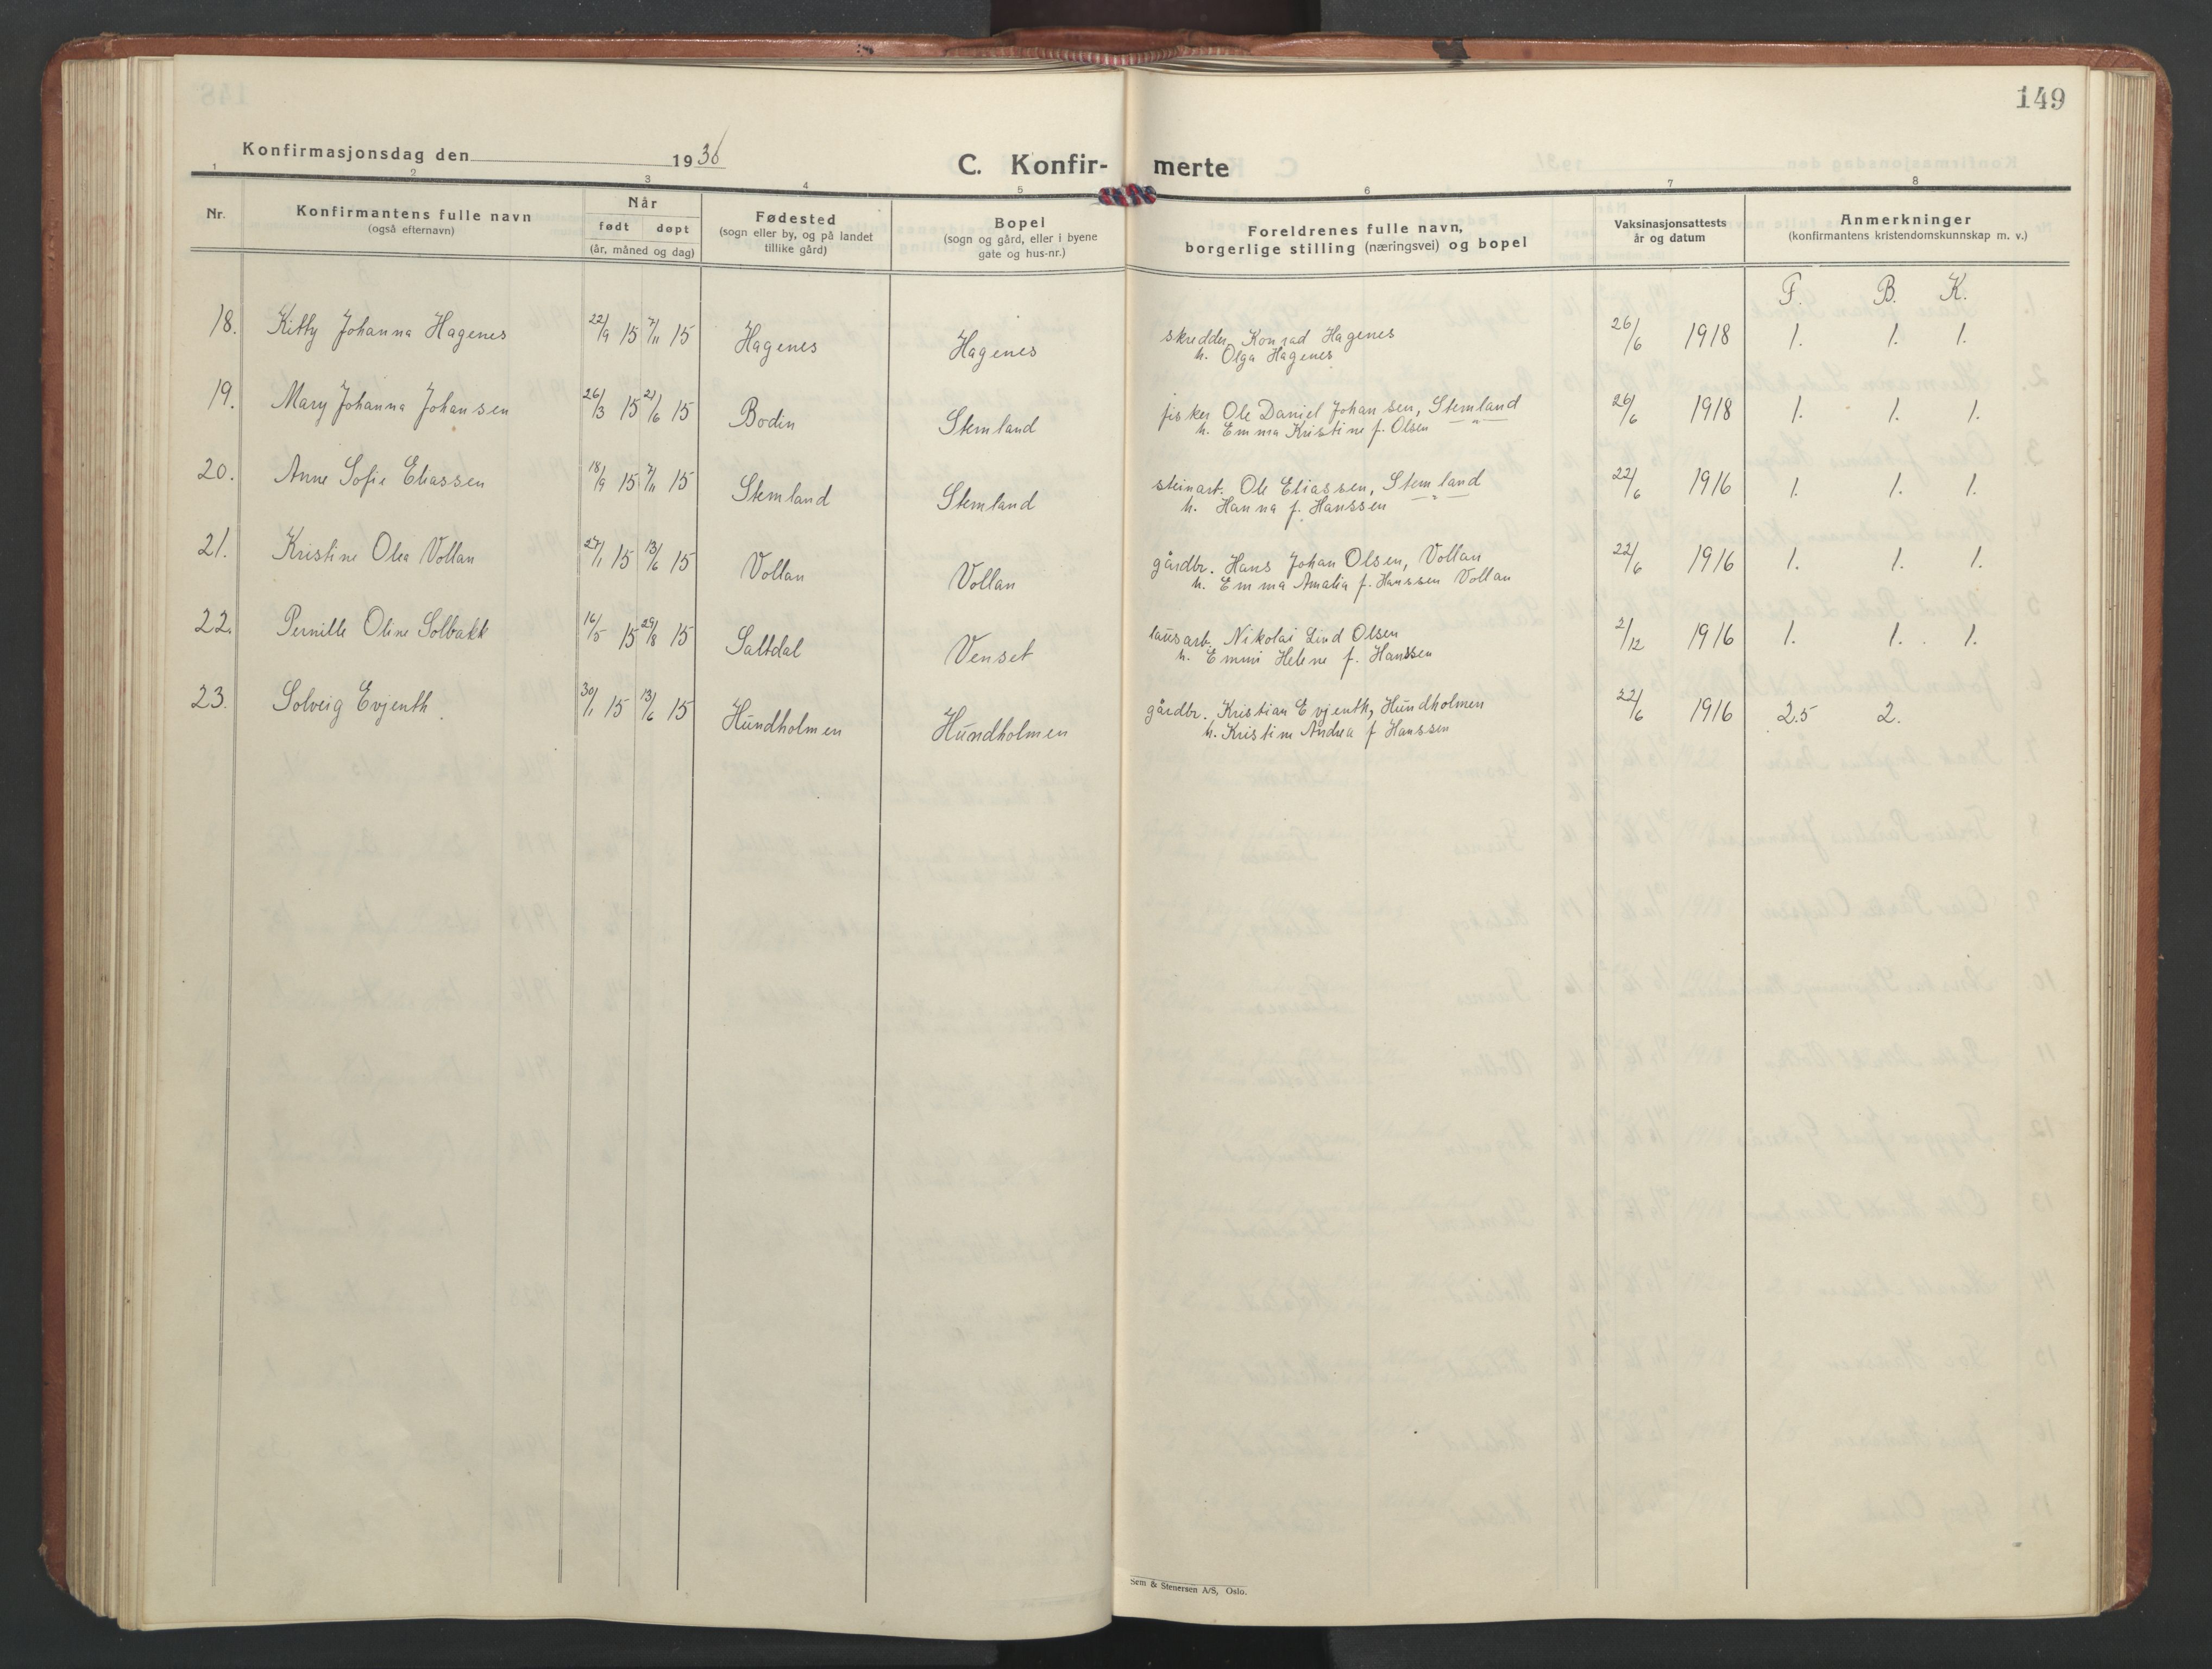 149
Konfirmasjonsdag den 1936
C. Konfir- merte
1 2 3 4 5 6 7 8
Nr.
Konfirmantens fulle navn
(også efternavn)
Når
født døpt
(år, måned og dag)
Fødested
(sogn eller by, og på landet
tillike gård)
Bopel
(sogn og gård, eller i byene
gate og hus-nr.)
Foreldrenes fulle navn,
borgerlige stilling (næringsvei) og bopel
Vaksinasjonsattests
år og datum
Anmerkninger
(konfirmantens kristendomskunnskap m. v.)
F. B. K.
18. Kitty Johanna Hagenes 22/9 15 7/11 15 Hagenes Hagenes skredder Konrad Hagenes 26/6 1918 1. 1. 1.
h. Olga Hagenes
19. Mary Johanna Johansen 26/3 15 21/6 15 Bodin Stemland fisker Ole Daniel Johansen, Stemland 26/6 1918 1. 1. 1.
h. Emma Kristine f. Olsen — " —
20. Anne Sofie Eliassen 18/9 15 7/11 15 Stemland Stemland steinarb. Ole Eliassen, Stemland 22/6 1916 1. 1. 1.
h. Hanna f. Hanssen — " —
21. Kristine Olea Vollan 27/1 15 13/6 15 Vollan Vollan gårdbr. Hans Johan Olsen, Vollan 22/6 1916 1. 1. 1.
h. Emma Amalia f. Hanssen Vollan
22. Pernille Oline Solbakk 16/5 15 29/8 15 Saltdal Venset lausarb. Nikolai Lind Olsen 2/12 1916 1. 1. 1.
h. Emmi Helene f. Hanssen
23. Solveig Evjenth 30/1 15 13/6 15 Hundholmen Hundholmen gårdbr. Kristian Evjenth, Hundholmen 22/6 1916 2.5 2.
h. Kristine Andrea f Hanssen
Sem & Stenersen A/S, Oslo.